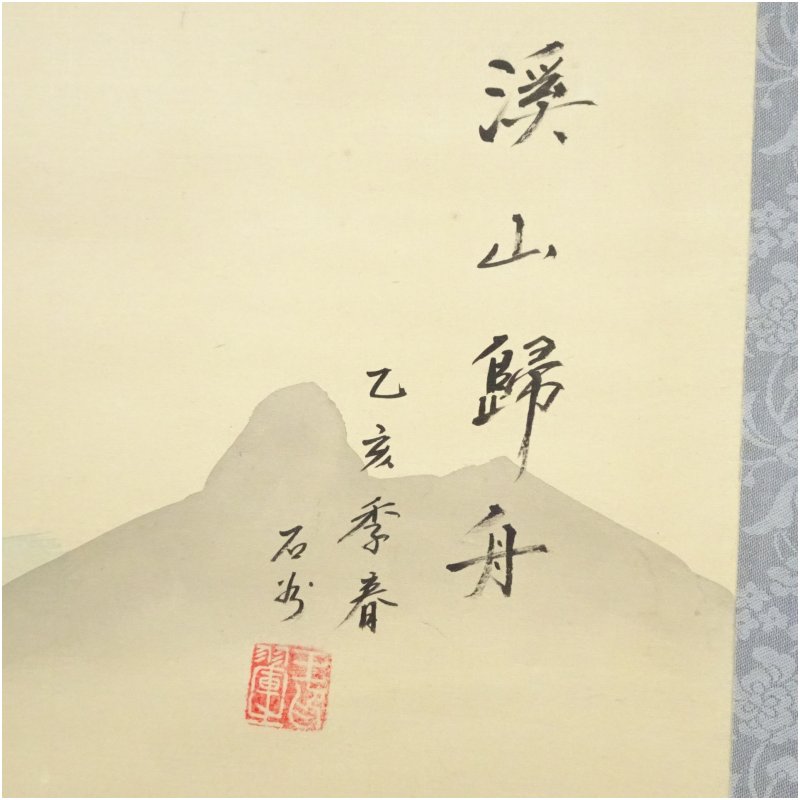 溪山歸舟
乙亥季春
石